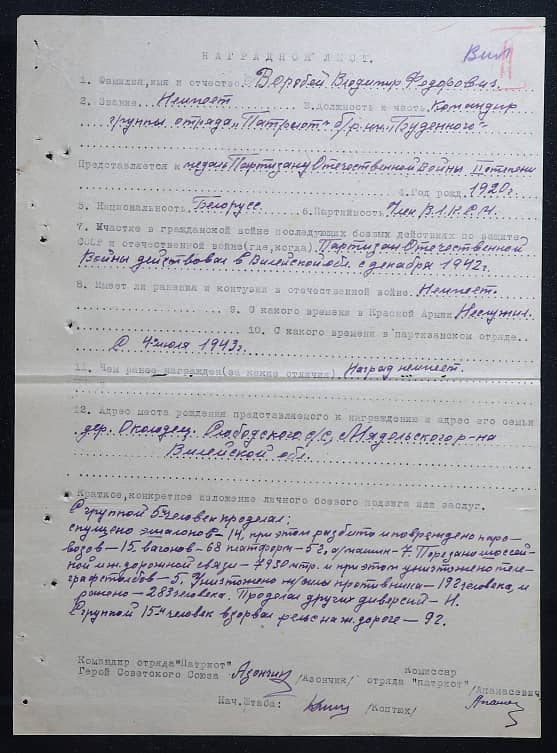 НАГРАДНОЙ ЛИСТ.
1. Фамилия,имя и отчество. Воробей Владимир Федорович.
2. Звание. Неимеет 3.должность и часть Командир
группы отряда „Патриот" бр. им. Буденного
Представляется к медал. Партизану Отечественной Войны II степени
4.Год рожд. 1920г.
5. Национальность Белорусс. 6.Партийность Член В.Л.К.С.М.
7. Участие в гражданской войне последующих боевых действиях по защите
СССР и отечественной войне(где,когда) Партизан Отечественной
Войны действовал в Вилейской обл. с декабря 1942г.
8. Имеет ли ранения и контузии в отечественной войне. Неимеет.
9. С какого времени в Красной Армии Неслужил.
10. С какого времени в партизанском отряде..
С 4 июля 1943г.
11. Чем ранее награжден(за какие отличия) Наград неимеет.
12. Адрес места рождения представляемого к награждению и адрес его семьи
дер. Слободского с/с, Мядельского р-на
Вилейской обл.
Краткое,конкретное изложение личного боевого подвига или заслуг.
С группой 5 человек проделал:
спущено эшалонов – 14, при этом разбито и повреждено паро-
возов – 15, вагонов – 68 платформ – 52, а/машин – 7. Порезано шоссей-
ной и ж. дорожной связи – 7930 мтр. и при этом уничтожено теле-
графстолбов – 5. Уничтожено ж/силы противника – 192 человека, и
ранено – 283 человека. Проделал других диверсий –
С группой 15-и человек взорвал рельс на ж. дороге – 92.
Командир отряда"Патриот" Комиссар
Герой Советского Союза /Азончик/ отряда "патриот" /Апанасевич/
Нач.Штаба: /Коптюх/